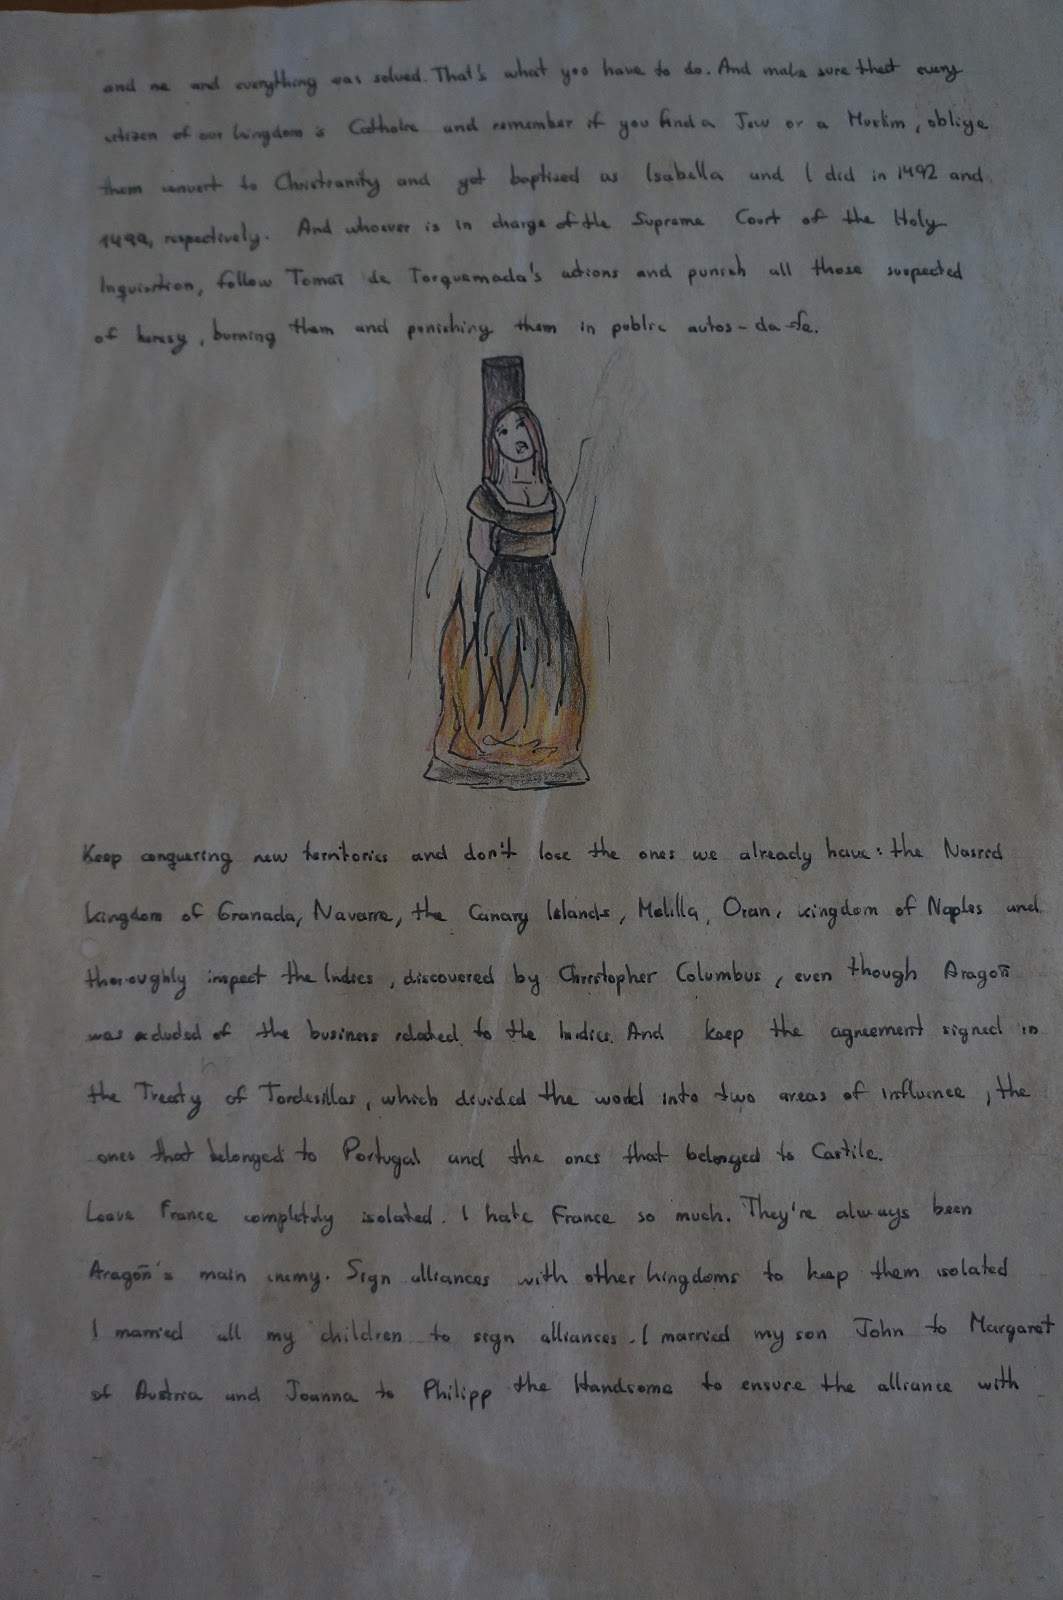 and me and everything was solved. That's what you have to do. And make sure that every
citizen of our kingdom is Catholic and remember if you find a Jew or a Muslim, oblige
them convert to Christianity and get baptised as Isabella and I did in 1492 and
1499, respectively. And whoever is in charge of the Supreme Court of the Holy
Inquisition, follow Tomás de Torquemada's actions and punish all those suspected
of heresy, burning them and punishing them in public autos-da-fe.
Keep conquering new territories and don't lose the ones we already have: the Nasrid
kingdom of Granada, Navarre, the Canary Islands, Melilla, Oran, kingdom of Naples and
thoroughly inspect the Indies, discovered by Christopher Columbus, even though Aragon
was excluded of the business related to the Indies. And keep the agreement signed in
the Treaty of Tordesillas, which divided the world into two areas of influence, the
ones that belonged to Portugal and the ones that belonged to Castile.
Leave France completely isolated. I hate France so much. They're always been
Aragon's main enemy. Sign alliances with other kingdoms to keep them isolated
I married all my children to sign alliances. I married my son John to Margaret
of Austria and Joanna to Philipp the Handsome to ensure the alliance with